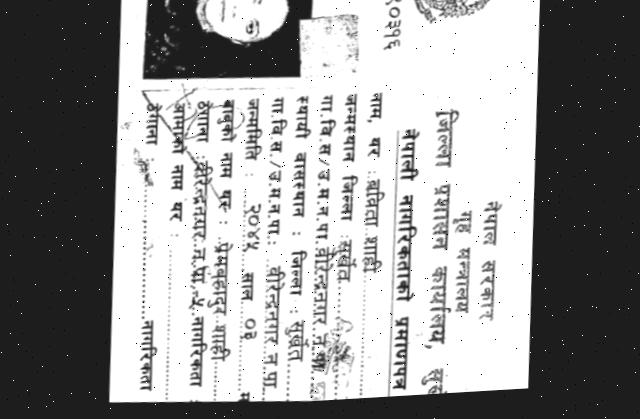 नेपाल सरकार
गृह मन्त्रालय
जिल्ला प्रशासन कार्यालय,
नेपाली नागरिकताको प्रमाणपत्र
२०३१६
नाम, थर :
जन्मस्थान जिल्ला : सुर्खेत
गा.वि.स/उ.म.न.पा. वीरेन्द्रनगर न.पा.
स्थायी वासस्थान : जिल्ला : सुर्खेत
गा.वि.स/उ.म.न.पा: वीरेन्द्रनगर न.पा.
जन्ममिति : २०४५ साल ०३
बाबुको नाम थर : प्रेमबहादुर शाही
ठेगाना : वीरेन्द्रनगर न.पा. नागरिकता
आमाको नाम थर :
ठेगाना : नागरिकता